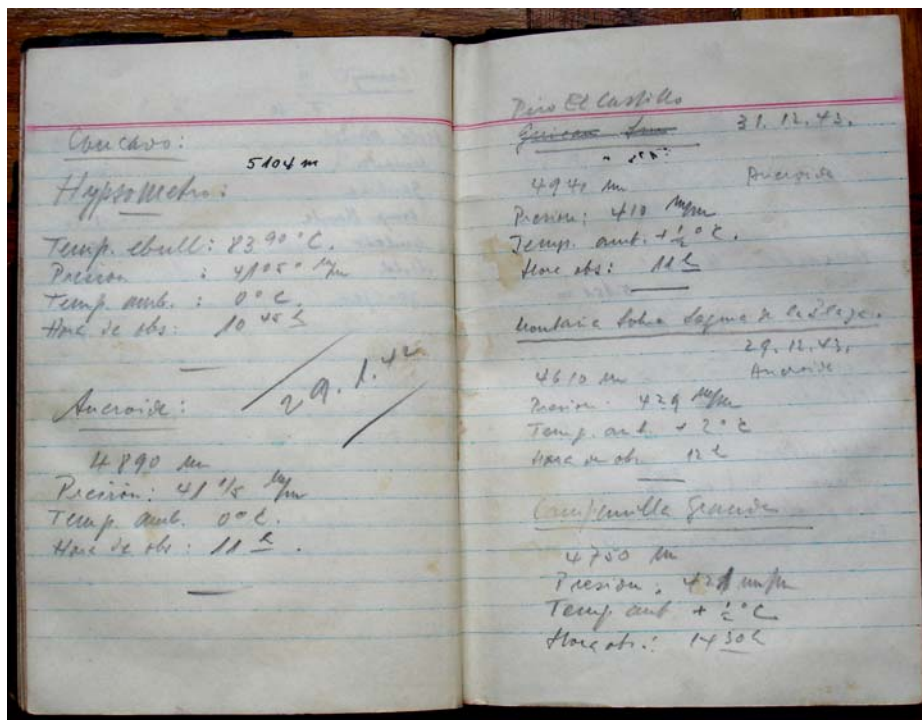 Concavo:
5104 m
Hypsometro:
Temp. ebull: 83,90°C.
Presion : m/m
Temp. amb. : 0° C.
Hora de obs: 10 45 h
29.1.42
Aneroide:
4890 m
Presion: 41 m/m
Temp. amb. 0° C.
Hora de obs: 11 h.
Pico El Castillo
31.12.43.
494 m
Aneroide
Presion: 410 m/m
Temp. amb. + ½ °C.
Hora obs: 11 h
Montaña sobre Laguna de la Plaza.
29.12.43.
4610 m
Aneroide
Presion: 429 m/m
Temp. amb. + 2° C
Hora de obs. 12 h
Campanilla Grande
4750 m
Presion: 421 m/m
Temp amb + ½ °C
Hora obs.: 14 30 h